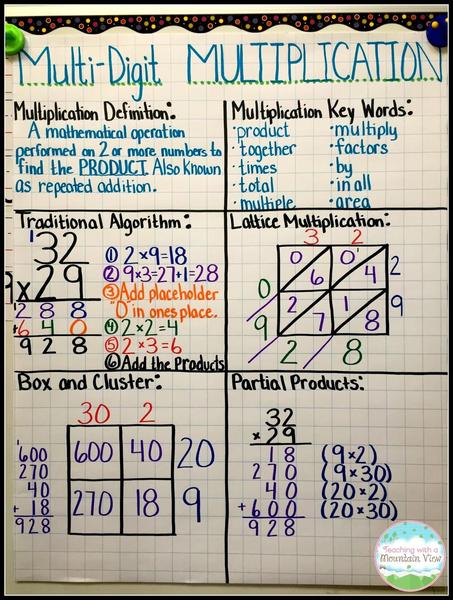 Multi-Digit MULTIPLICATION
Multiplication Definition:
A mathematical operation
performed on 2 or more numbers to
find the PRODUCT. Also known
as repeated addition.
Multiplication Key Words:
·product ·multiply
·together ·factors
·times ·by
·total ·in all
·multiple ·area
Traditional Algorithm:
1
32
×29
288
+640
928
① 2×9=18
② 9×3=27+1=28
③ Add placeholder
"0" in ones place.
④ 2×2=4
⑤ 2×3=6
⑥ Add the Products
Lattice Multiplication:
3 2
0 6 0 4 2
0
2 7 1 8 9
9
2 8
Box and Cluster:
30 2
600 40 20
270 18 9
1
600
270
40
+ 18
928
Partial Products:
32
×29
18 (9×2)
270 (9×30)
40 (20×2)
+600 (20×30)
928
Teaching with a
Mountain View